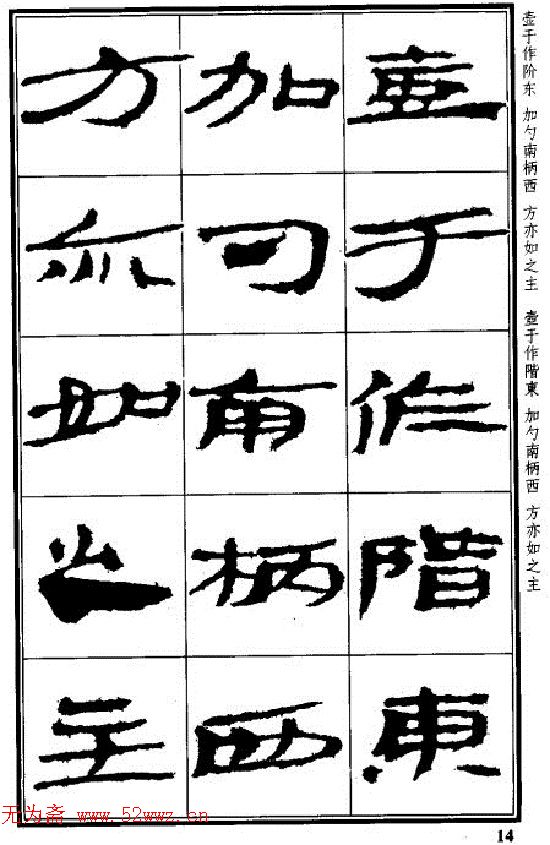 壶于作阶东 加勺南柄西 方亦如之主 壺于作階東 加勺南柄西 方亦如之主
壺于作階東
加勺南柄西
方亦如之主
无为斋 www.52wwz.cn
14